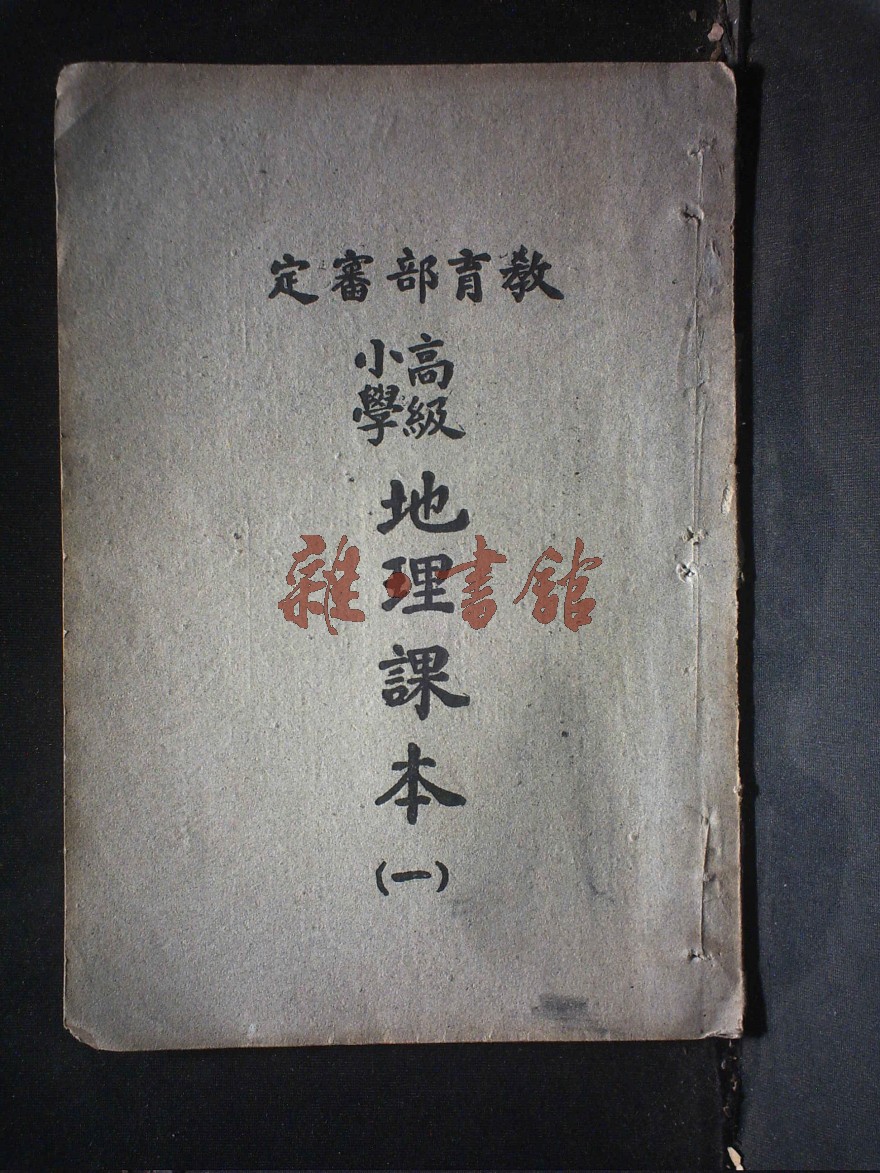 教育部審定
高級
小學
地理課本
(一)
雜·書館